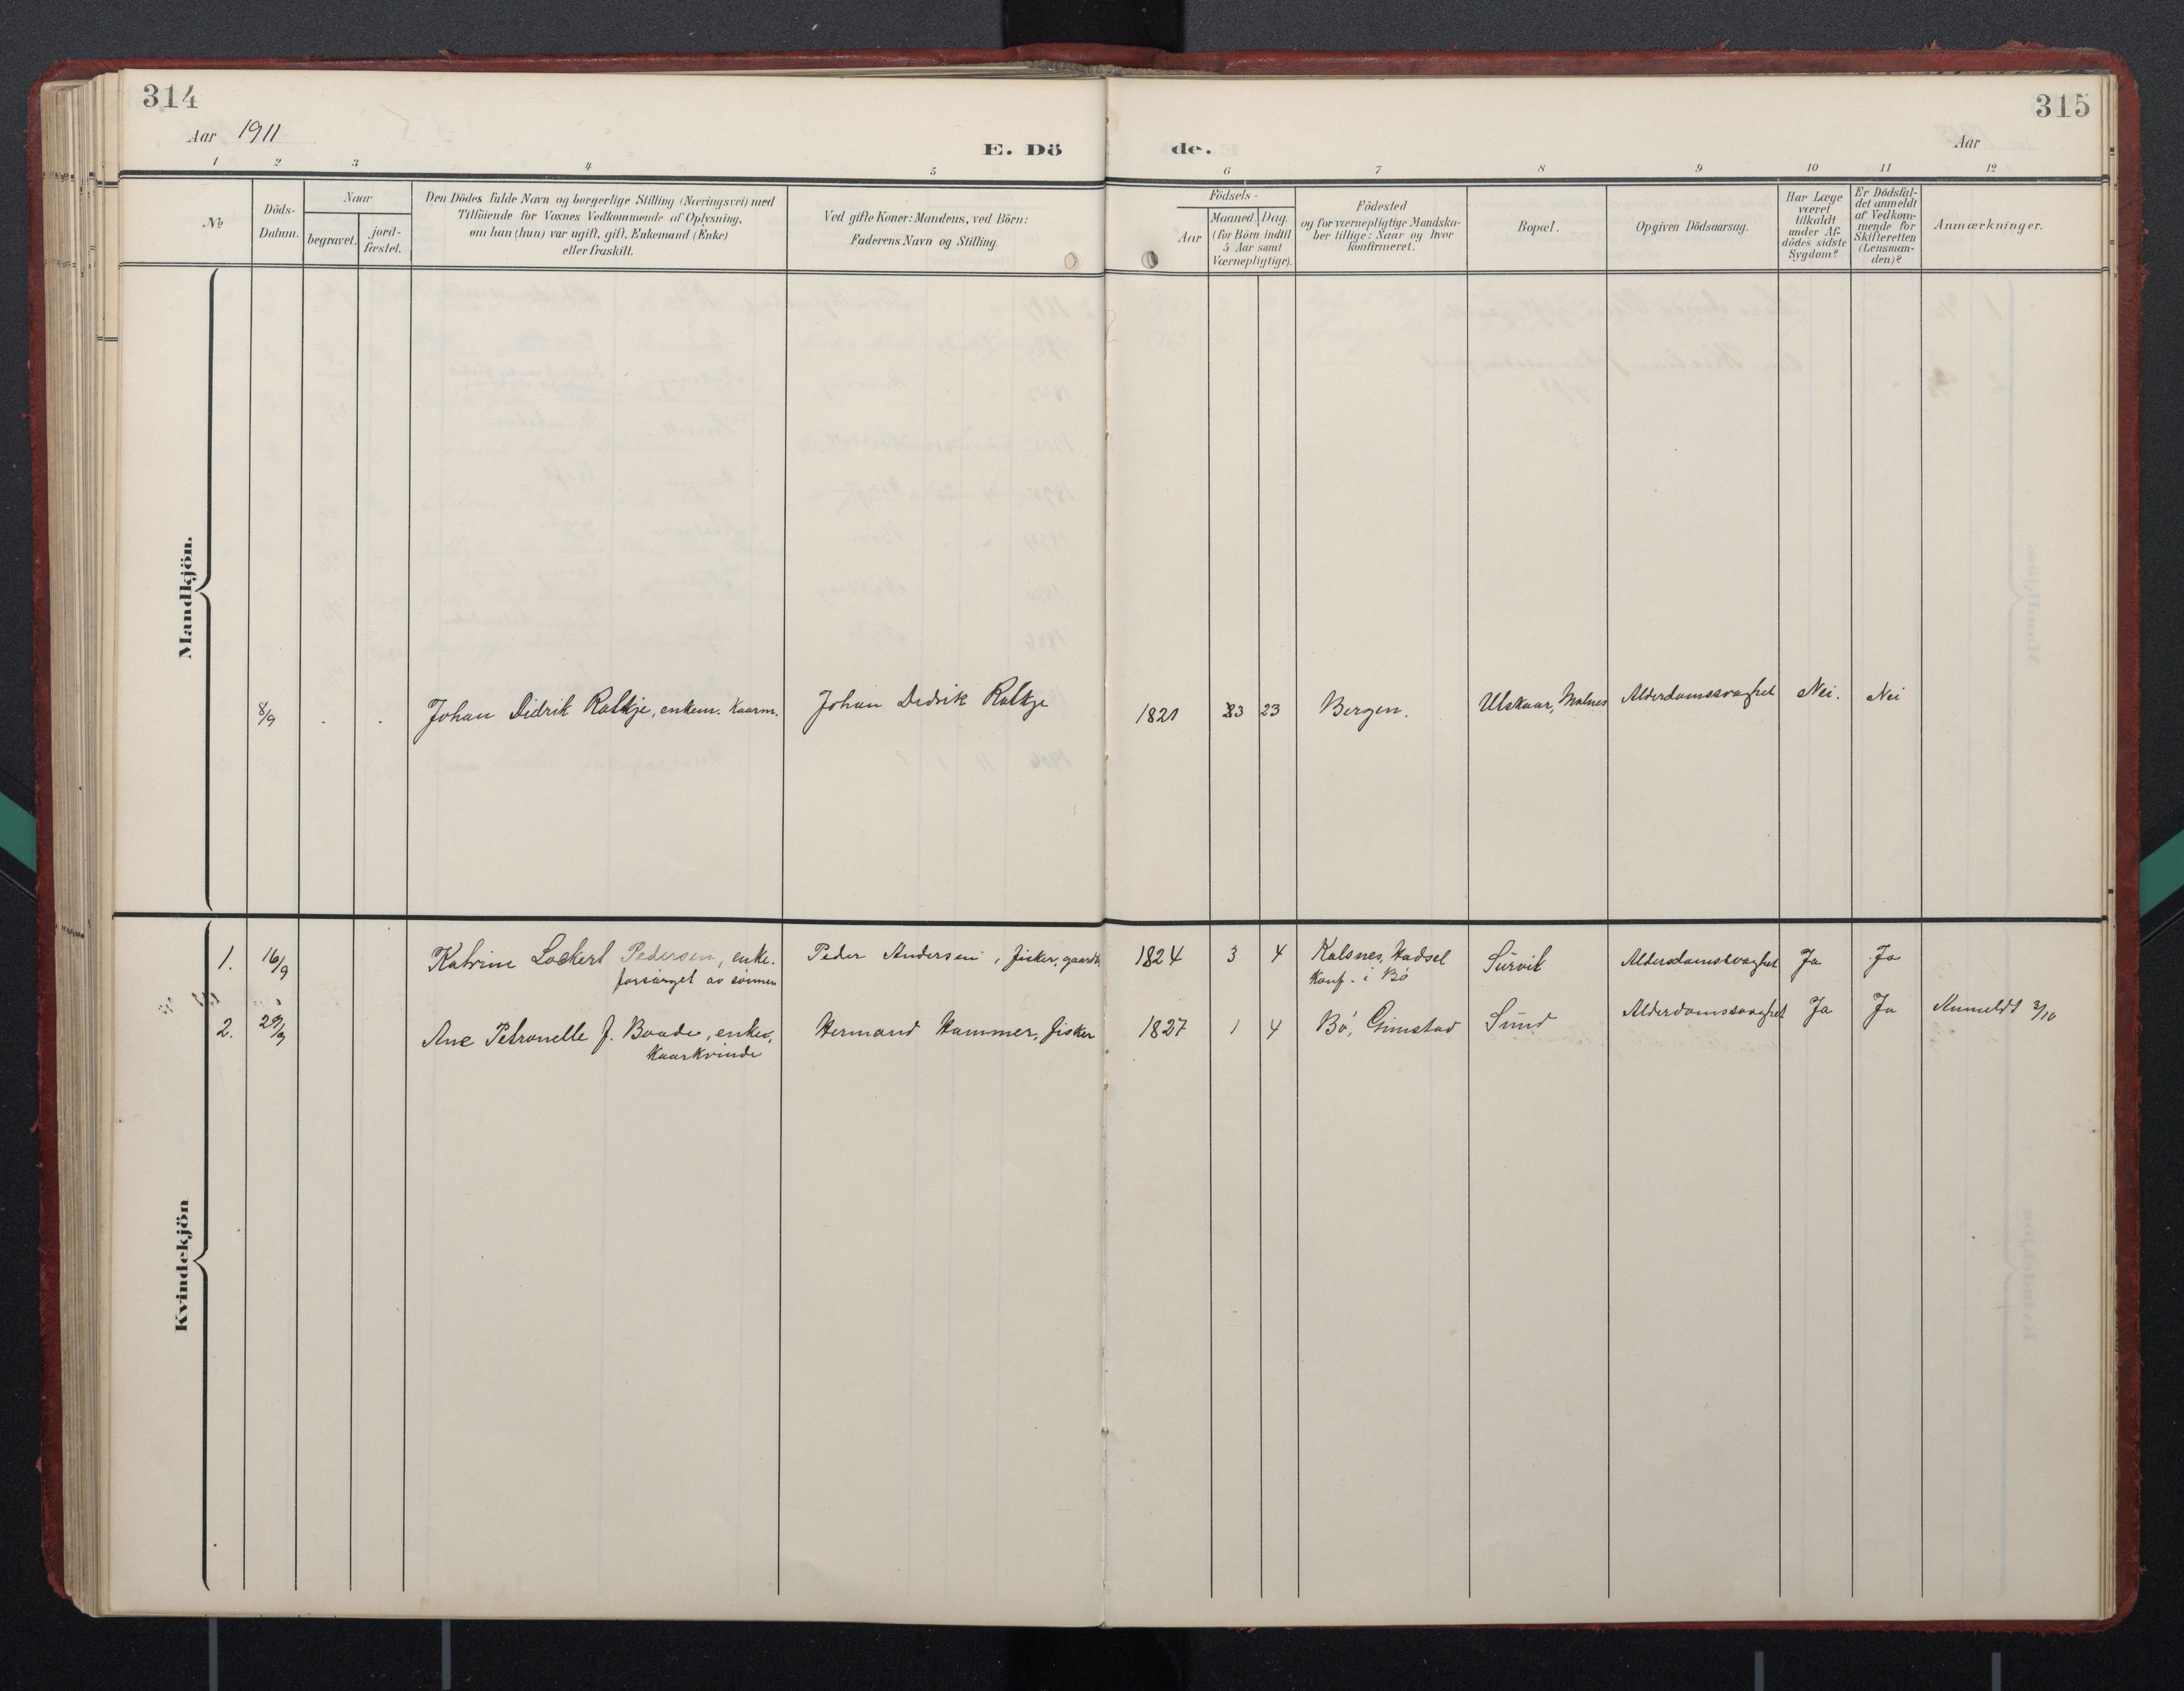 314
315
Aar 1911
E. Dö
de.
Aar
1 2 3 4 5 6 7 8 9 10 11 12
№
Döds-
Datum.
Naar
begravet.
jord-
fæstet.
Den Dödes fulde Navn og borgerlige Stilling (Næringsvei) med
Tilföiende for Voxnes Vedkommende af Oplysning,
om han (hun) var ugift, gift, Enkemand (Enke)
eller fraskilt.
Ved gifte Koner: Mandens, ved Börn:
Faderens Navn og Stilling.
Födsels-
Aar
Maaned. Dag.
(for Börn indtil
5 Aar samt
Værnepligtige).
Födested
og for værnepligtige Mandska-
ber tillige: Naar og hvor
konfirmeret.
Bopæl.
Opgiven Dödsaarsag.
Har Læge
været
tilkaldt
under Af-
dödes sidste
Sygdom?
Er Dödsfal-
det anmeldt
af Vedkom-
mende for
Skifteretten
(Lensman-
den)?
Anmærkninger.
Mandkjön.
8/9 . . Johan Didrik Ratkje, enkem. Kaarm. Johan Didrik Ratkje 1821 3 23 Bergen. Utskaar, Malnes Alderdomssvaghet Nei. Nei
Kvindekjön
1. 16/9 Katrine Lockert Pedersen, enke. Peder Andersen, fisker, gaardb 1824 3 4 Kalsnes, Hadsel Survik Alderdomssvaghet Ja Ja
forsørget av sønnen
Konf. i Bø
2. 29/9 Ane Petronelle f. Baade, enke, Hermand Hammer, fisker 1827 1 4 Bø, Gimstad Sund Alderdomssvaghet Ja Ja Anmeldt 3/10
Kaarkvinde